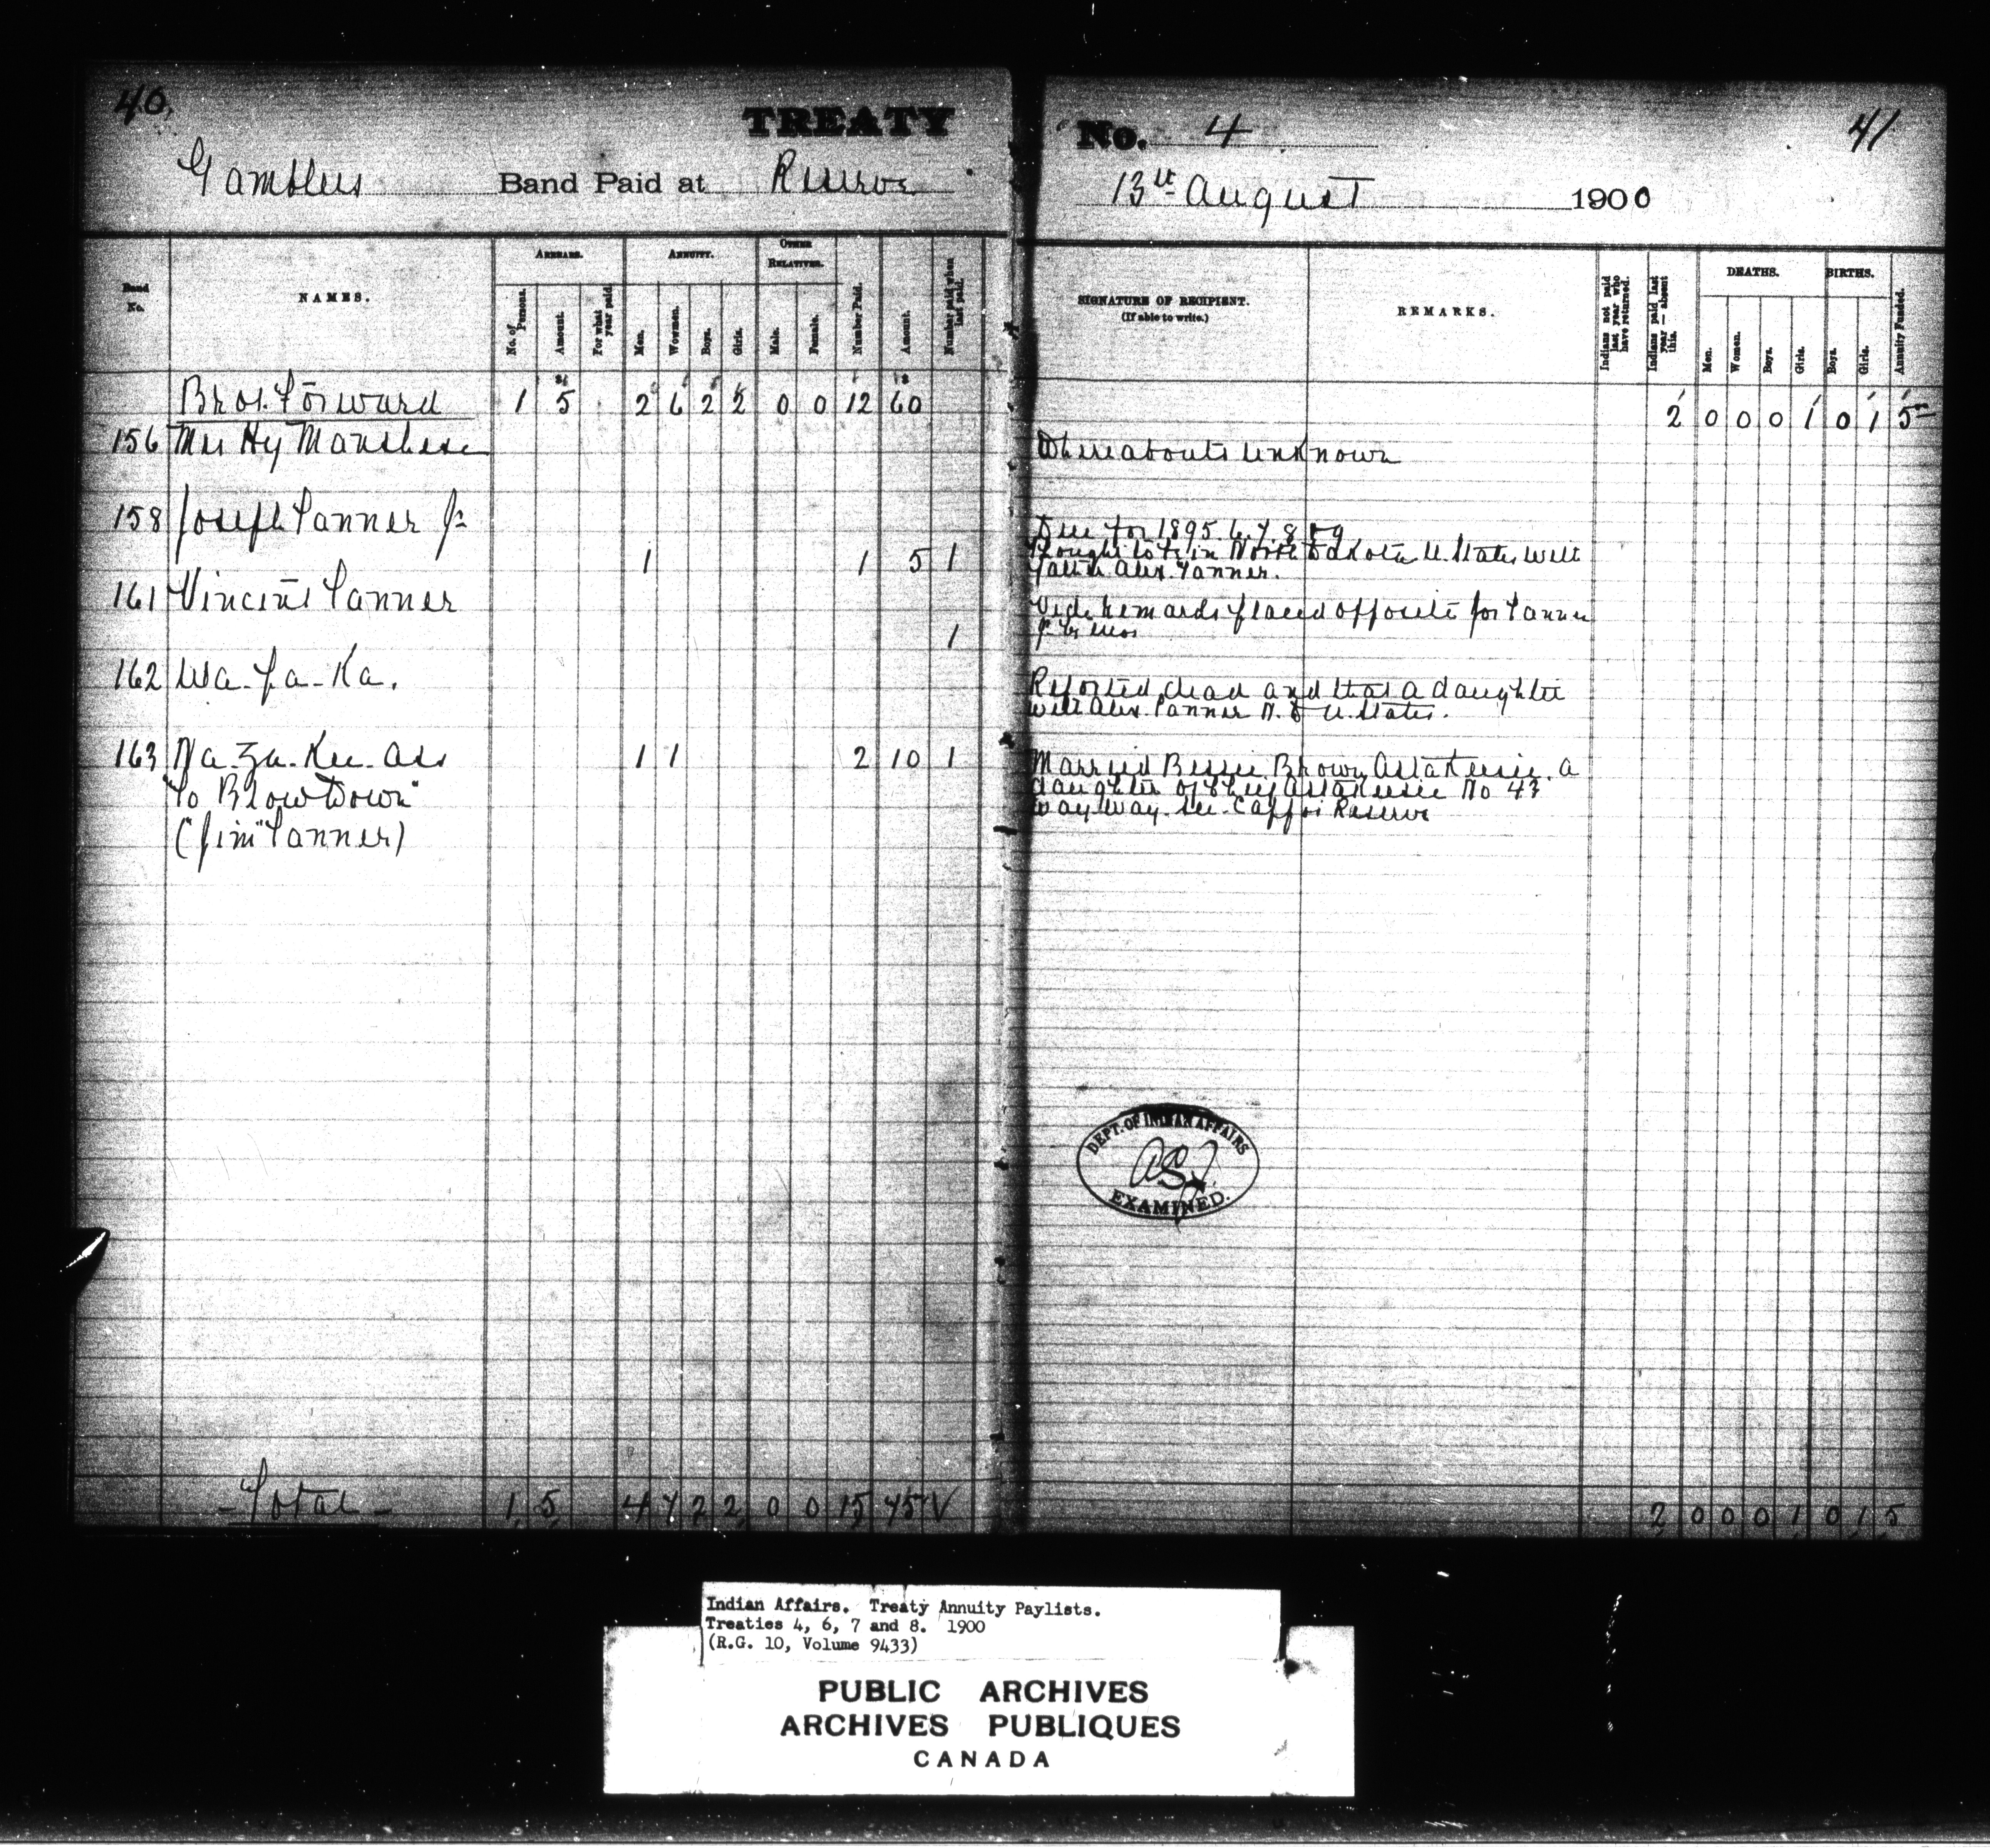 40.
TREATY
Gamblers Band Paid at Reserve
Band No.
NAMES.
ARREARS.
No. of Persons.
Amount.
For what year paid.
ANNUITY.
Men.
Women.
Boys.
Girls.
OTHER RELATIVES.
Male.
Female.
Number Paid.
Amount.
Number paid when last paid.
Brot. Forward 1 5 2 6 2 2 0 0 12 60
156 Mrs Hy
158 Joseph Tanner Jr
1 1 5 1
161 Vincent Tanner
1
162 Wa-pa-Ka.
163 Na-za-Kee-Ass 1 1 2 10 1
"To Blow Down"
("Jim" Tanner)
-Total- 1 5 4 7 2 2 0 0 15 75 V
No. 4
41
13th August 1900
SIGNATURE OF RECIPIENT.
(If able to write.)
REMARKS.
Indians not paid last year who have returned.
Indians paid last year—absent this.
DEATHS.
Men.
Women.
Boys.
Girls.
BIRTHS.
Boys.
Girls.
Annuity Funded.
2 0 0 0 1 0 1 5
Whereabouts unknown
Due for 1895.6.7.8 & 9
thought to be in North Dakota U. States with
Alex. Tanner.
Vide remarks placed opposite Jos Tanner
Jr
Reported dead and that a daughter
with Alex. Tanner N. D U. States.
Married Bessie Brown a
daughter of No 43
Way way see Cappo Reserve
DEPT. OF INDIAN AFFAIRS
EXAMINED.
2 0 0 0 1 0 1 5
Indian Affairs. Treaty Annuity Paylists.
Treaties 4, 6, 7 and 8. 1900
(R.G. 10, Volume 9433)
PUBLIC ARCHIVES
ARCHIVES PUBLIQUES
CANADA